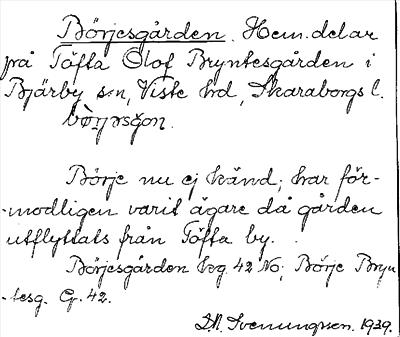 Börjesgården. Hem.delar
på Töfta Olof Bryntesgården i
Bjärby s:n, Viste hrd, Skaraborgs l.

Börje nu ej känd; har för-
-modligen varit ägare då gården
utflyttats från Töfta by.
Börjesgården beg. 42 No; Börje Bryn
-tesg. G. 42.
Svenungsson. 1939.